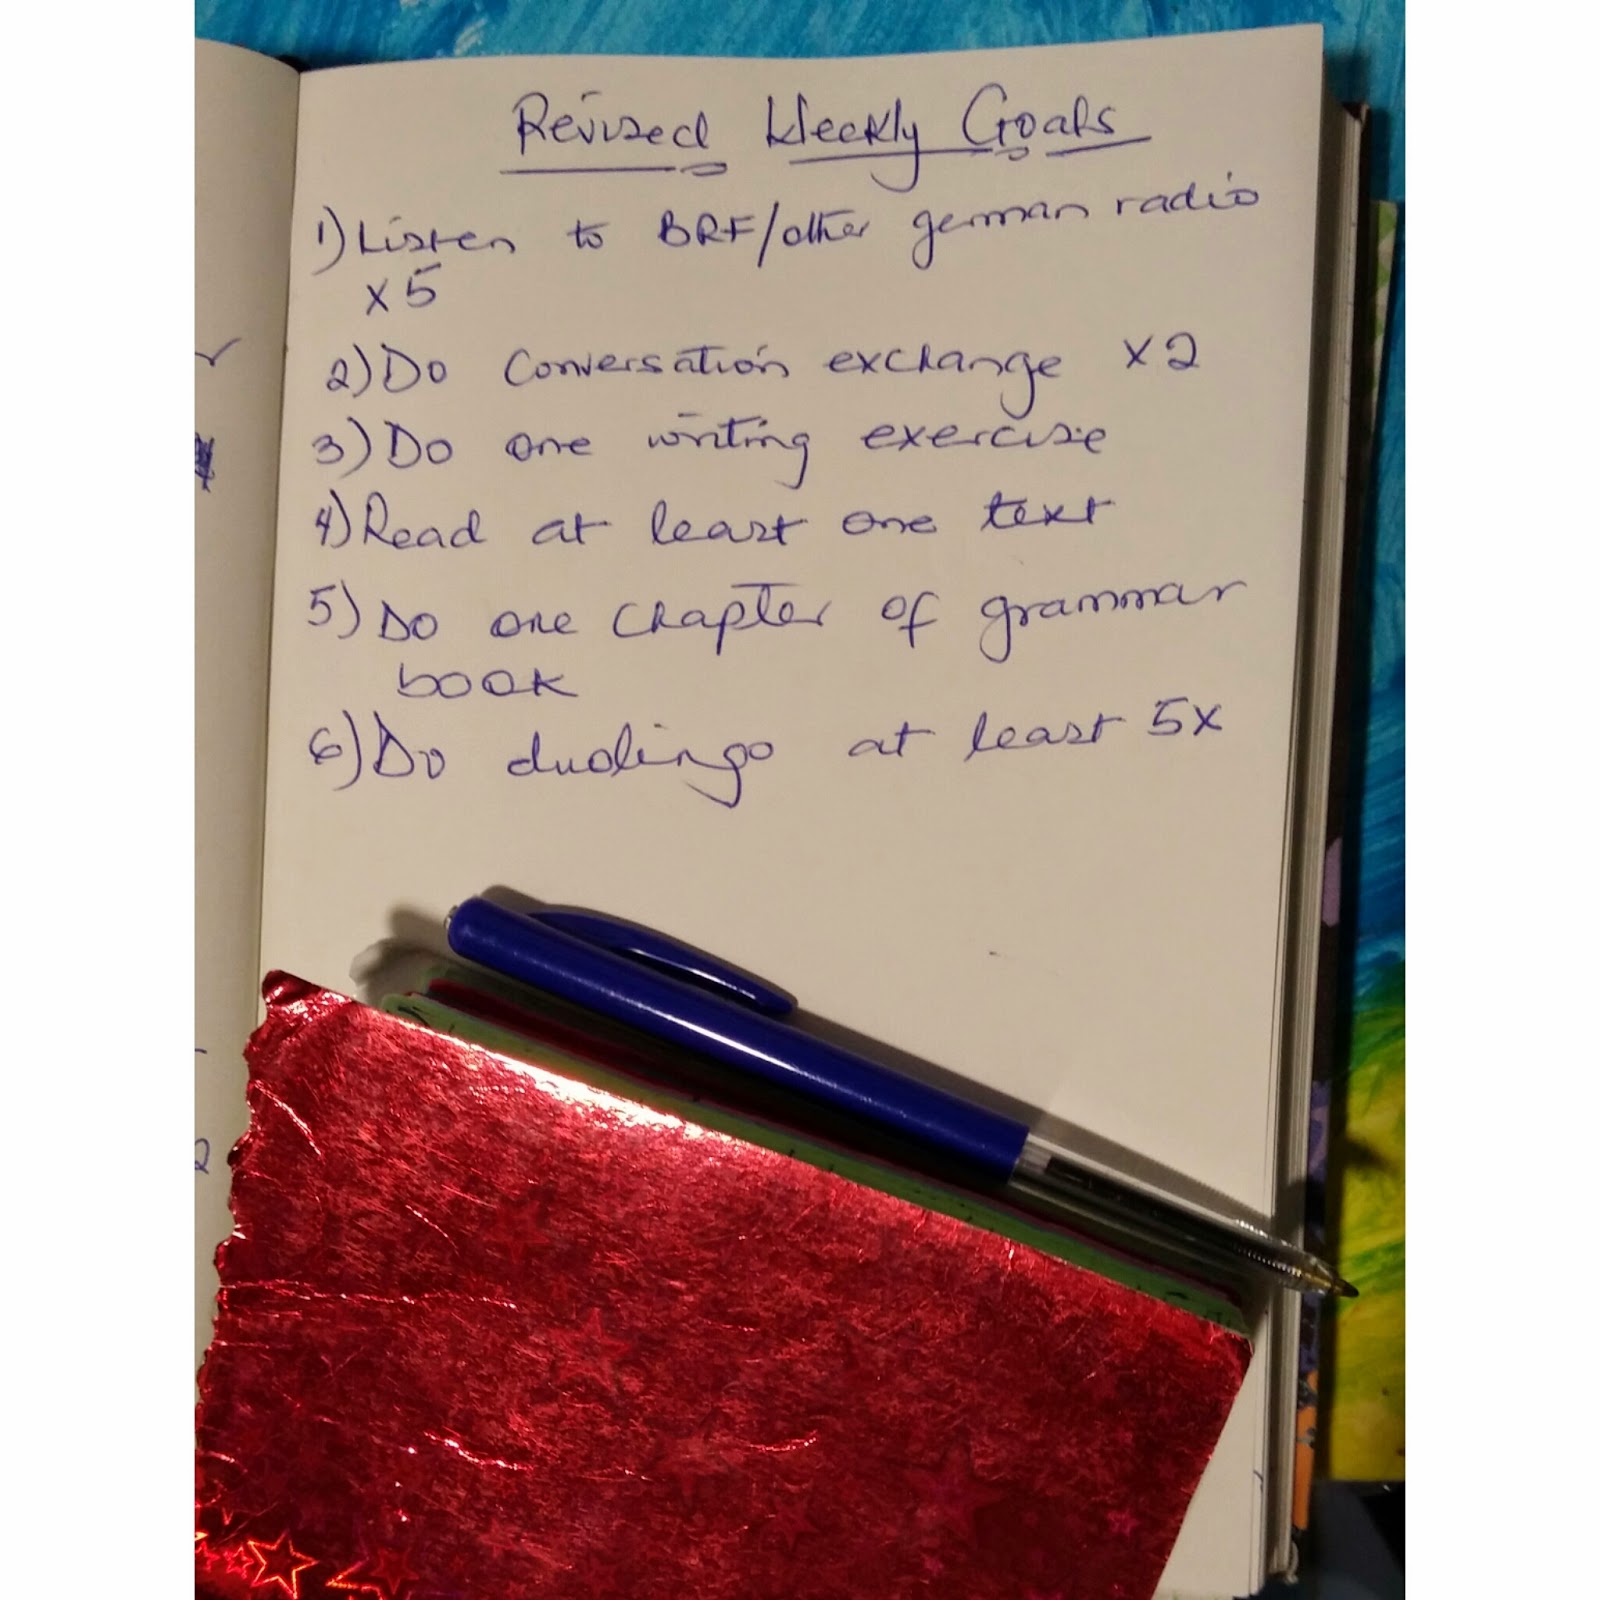 Revised Weekly Goals
1) Listen to BRF/other german radio
x 5
2) Do conversation exchange x 2
3) Do one writing exercise
4) Read at least one text
5) Do one chapter of grammar
book
6) Do duolingo at least 5x